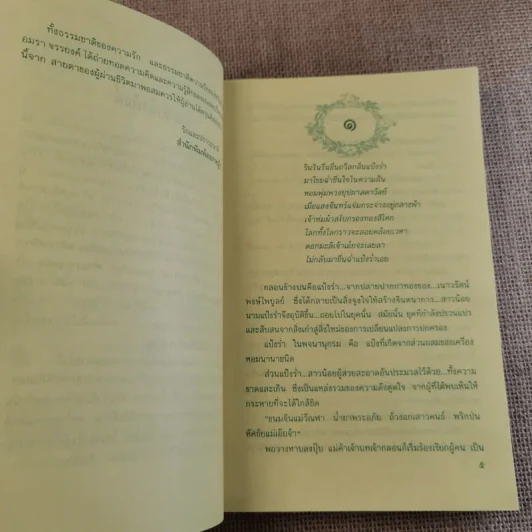 ทั้งธรรมชาติของความรัก และธรรมชาติความ
อมรา จรรยงค์ ได้ถ่ายทอดความคิดและความรู้สึก
นี้จาก สายตาของผู้ผ่านชีวิตมาพอสมควรให้ผู้อ่านได้
๑
รินรินรื่นชื่นกลิ่นแป้งร่ำ
มาโชยฉ่ำชื่นใจในความฝัน
หอมพุ่มพวงบุปผาลดาวัลย์
เมื่อแสงจันทร์แจ่มกระจ่างอยู่กลางฟ้า
เจ้าห่มผ้าสไบกรองทองสีโศก
โลกทั้งโลกราวจะลอยคล้อยเวหา
ดอกมะลิเจ้าเอ๋ยจะเลยลา
ไม่กลับมาชื่นฉ่ำแป้งร่ำเอย
กลอนข้างบนคือแป้งร่ำ...จากปลายปากกาทองของ...เนาวรัตน์
พงษ์ไพบูลย์ ซึ่งได้กลายเป็นสิ่งจูงใจให้สร้างจินตนาการ...สาวน้อย
นามแป้งร่ำจึงอุบัติขึ้น...ย้อนไปในยุคนั้น สมัยนั้น ยุคที่กำลังปรวนแปร
และสับสนจากสิ่งเก่าสู่สิ่งใหม่ของการเปลี่ยนแปลงการปกครอง
แป้งร่ำ ในพจนานุกรม คือ แป้งที่เกิดจากส่วนผสมของเครื่อง
หอมนานาชนิด
ส่วนแป้งร่ำ...สาวน้อยผู้สวยสะอาดอันประมวลไว้ด้วย...ทั้งความ
ขาดและเกิน ซึ่งเป็นแหล่งรวมของความดึงดูดใจ จากผู้ที่ได้พบเห็นให้
กระหายที่จะได้ใกล้ชิด
"ขนมจีนแม่วัณฬา น้ำยาพระอภัย ถั่วงอกเสาวคนธ์ พริกป่น
หัศชัยแม่เอ๊ยจ้า"
พอวางหาบลงปุ๊บ แม่ค้าเจ้าบทเจ้ากลอนก็เริ่มร้องเรียกผู้คน เป็น
๕